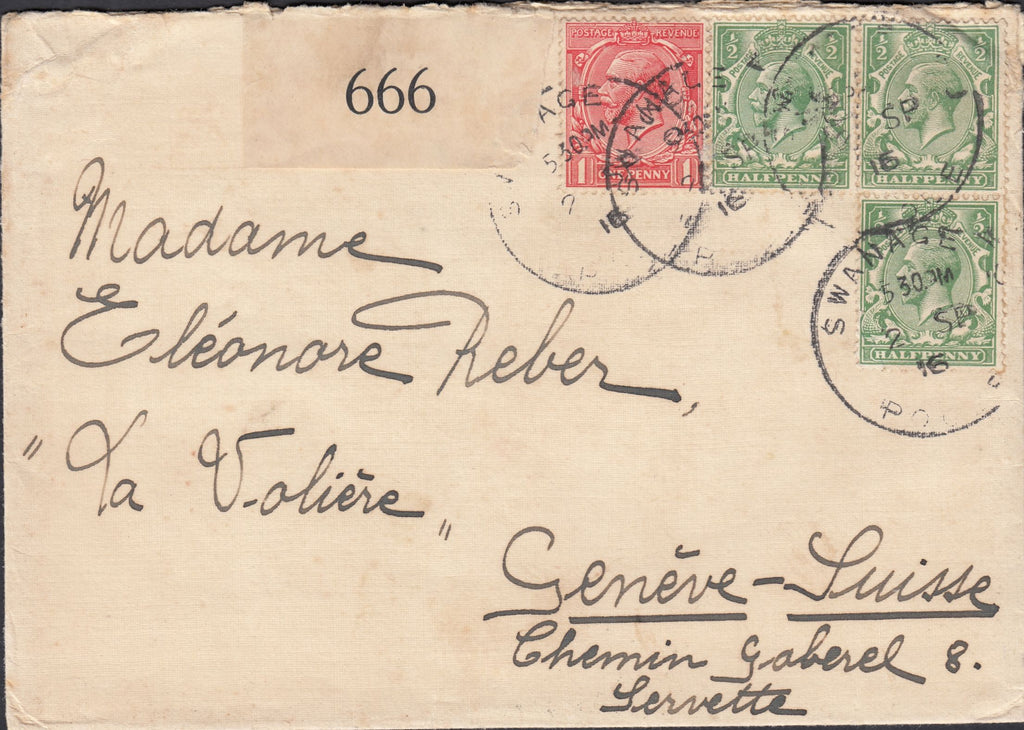 666
POSTAGE REVENUE
1 ONE PENNY 1
½ POSTAGE REVENUE ½
HALFPENNY
½ POSTAGE REVENUE ½
HALFPENNY
½ POSTAGE REVENUE ½
HALFPENNY
SWANAGE
5 30 PM
2 SP
16
Madame
Eléonore Reber,
"La Volière"
Genève - Suisse
Chemin Gaberel 8.
Servette